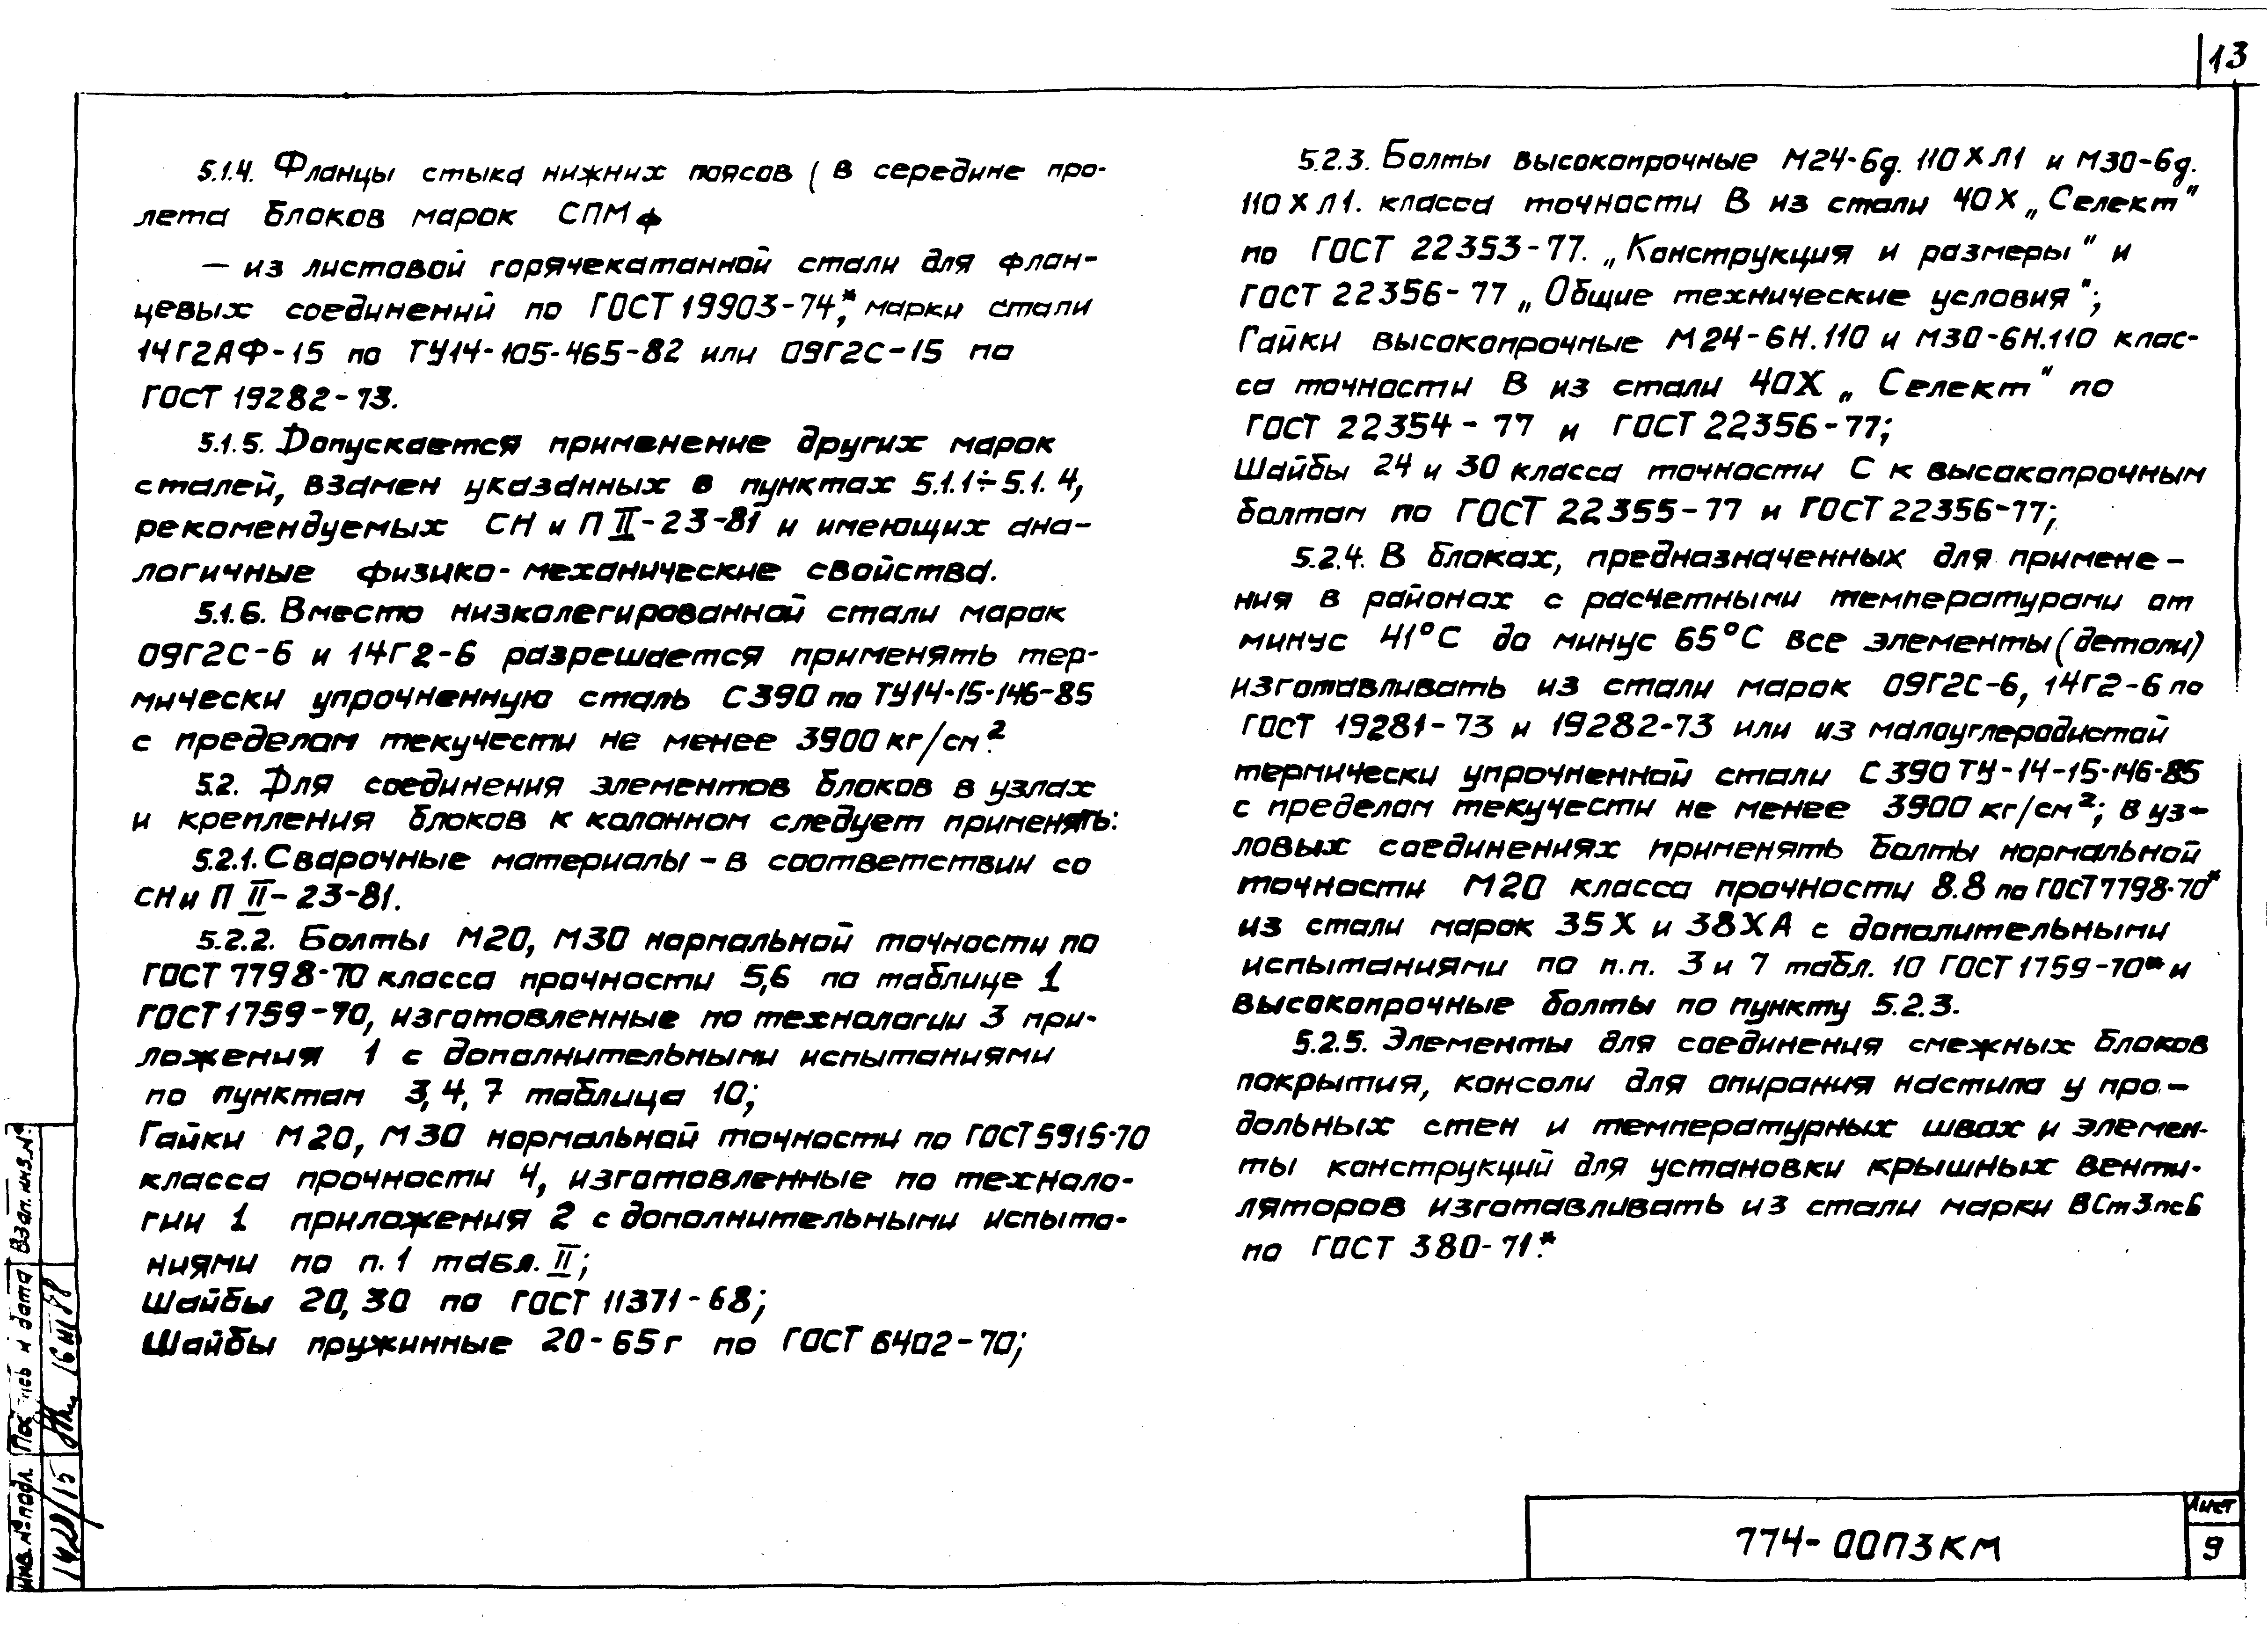 13
5.1.4. Фланцы стыка нижних поясов ( в середине про-
лета блоков марок СПМф
– из листовой горячекатанной стали для флан-
цевых соединений по ГОСТ 19903-74*, марки стали
14Г2АФ-15 по ТУ14-105-465-82 или 09Г2С-15 по
ГОСТ 19282-73.
5.1.5. Допускается применение других марок
сталей, взамен указанных в пунктах 5.1.1÷5.1.4,
рекомендуемых СНиП II-23-81 и имеющих ана-
логичные физико-механические свойства.
5.1.6. Вместо низколегированной стали марок
09Г2С-6 и 14Г2-6 разрешается применять тер-
мически упрочненную сталь С390 по ТУ14-15-146-85
с пределом текучести не менее 3900 кг/см².
5.2. Для соединения элементов блоков в узлах
и крепления блоков к колонном следует применять:
5.2.1. Сварочные материалы – в соответствии со
СНиП II-23-81.
5.2.2. Болты М20, М30 нормальной точности по
ГОСТ 7798-70 класса прочности 5,6 по таблице 1
ГОСТ 1759-70, изготовленные по технологии 3 при-
ложения 1 с дополнительными испытаниями
по пунктам 3, 4, 7 таблица 10;
Гайки М20, М30 нормальной точности по ГОСТ 5915-70
класса прочности 4, изготовленные по техноло-
гии 1 приложения 2 с дополнительными испыта-
ниями по п.1 табл. II;
Шайбы 20, 30 по ГОСТ 11371-68;
Шайбы пружинные 20-65г по ГОСТ 6402-70;
5.2.3. Болты высокопрочные М24-6g. 110ХЛ1 и М30-6g.
110ХЛ1. класса точности В из стали 40Х „Селект"
по ГОСТ 22353-77. „Конструкция и размеры" и
ГОСТ 22356-77 „Общие технические условия";
Гайки высокопрочные М24-6Н.110 и М30-6Н.110 клас-
са точности В из стали 40Х „Селект" по
ГОСТ 22354-77 и ГОСТ 22356-77;
Шайбы 24 и 30 класса точности С к высокопрочным
болтам по ГОСТ 22355-77 и ГОСТ 22356-77;
5.2.4. В блоках, предназначенных для примене-
ния в районах с расчетными температурами от
минус 41°С до минус 65°С все элементы (детали)
изготавливать из стали марок 09Г2С-6, 14Г2-6 по
ГОСТ 19281-73 и 19282-73 или из малоуглеродистой
термически упрочненной стали С390 ТУ-14-15-146-85
с пределом текучести не менее 3900 кг/см²; в уз-
ловых соединениях применять болты нормальной
точности М20 класса прочности 8.8 по ГОСТ 7798-70*
из стали марок 35Х и 38ХА с допалительными
испытаниями по п.п. 3 и 7 табл. 10 ГОСТ 1759-70* и
высокопрочные болты по пункту 5.2.3.
5.2.5. Элементы для соединения смежных блоков
покрытия, консоли для опирания настила у про-
дольных стен и температурных швах и элемен-
ты конструкций для установки крышных венти-
ляторов изготавливать из стали марки ВСт3пс6
по ГОСТ 380-71*.
774-00ПЗКМ
Лист
9
Взап. инв. №
Подпись и дата
Инв. № подл.
1420/15